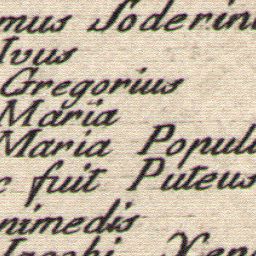 mus Soderin
Ivus
Gregorius
Maria
Maria Popul
c fuit Puteus
nimedis
Jacobi Xen